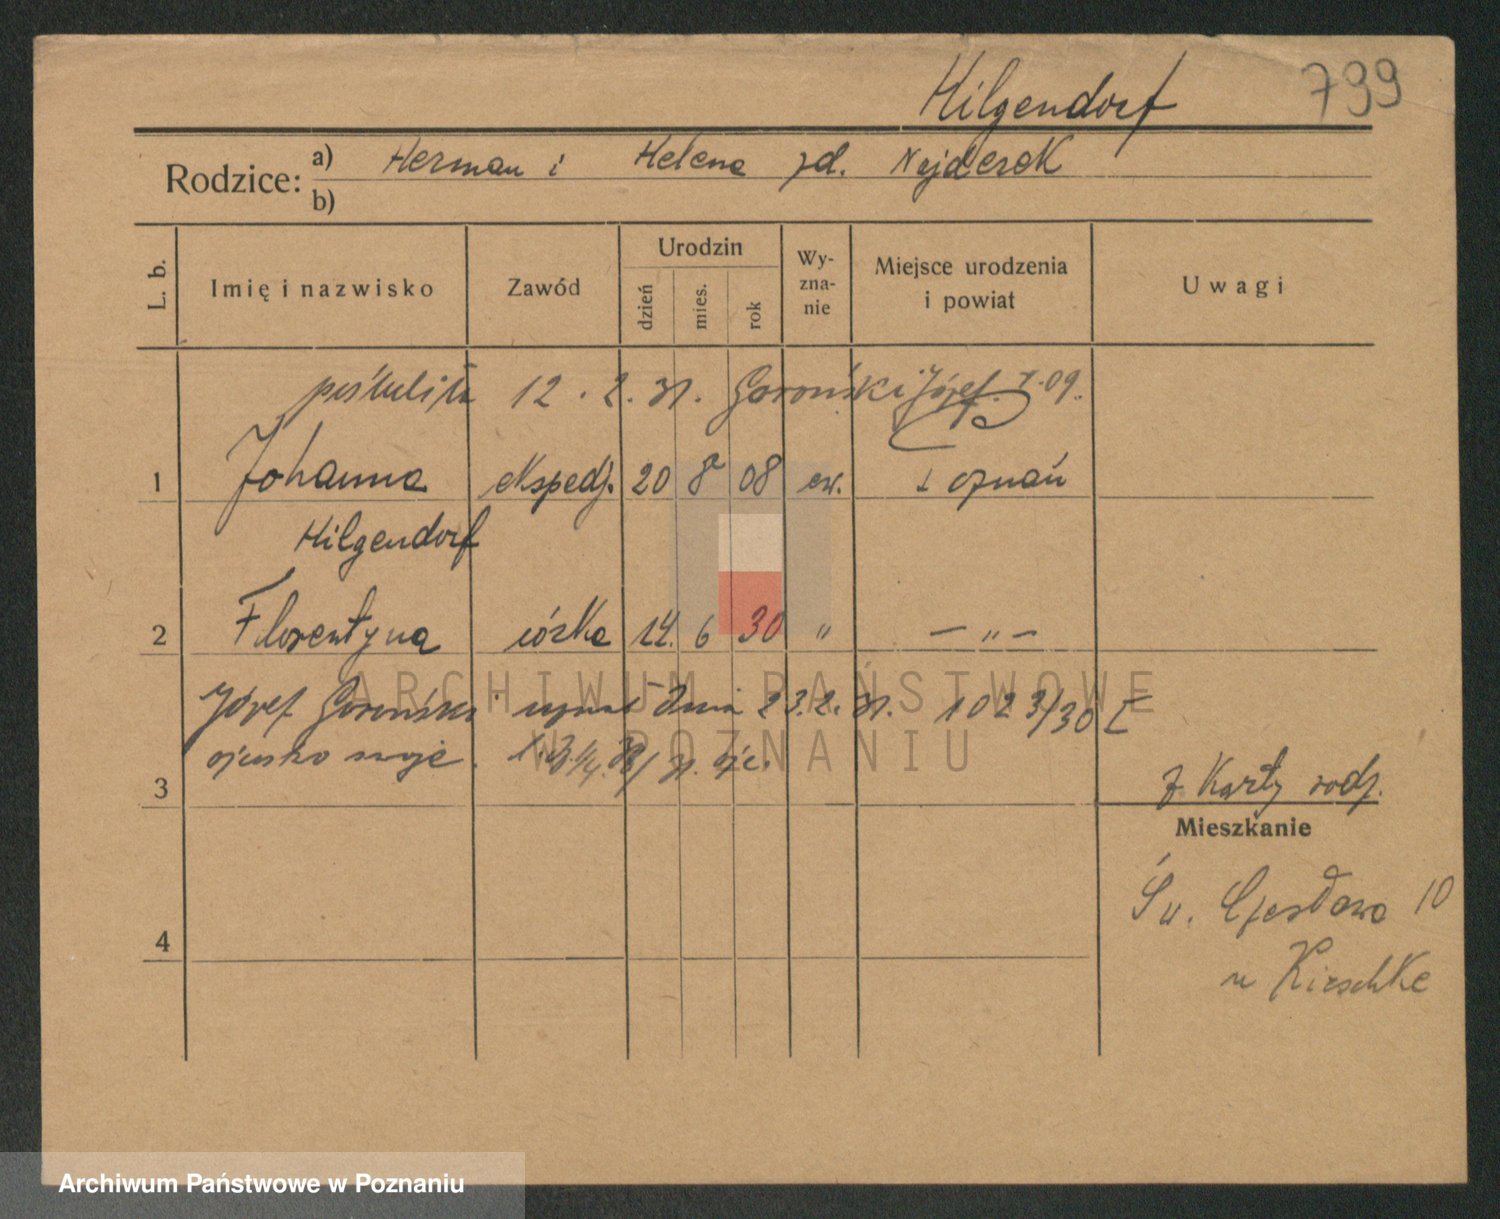 Hilgendorf 799
Rodzice: a) Herman i Helena zd. Najderek
b)
L. b. Imię i nazwisko Zawód Urodzin dzień mies. rok Wyznanie Miejsce urodzenia i powiat Uwagi
poślubiła 12. 2. 31. Goroński Józef 7.09.
1 Johanna ekspedj. 20 8 08 ew. Poznań
Hilgendorf
2 Florentyna córka 14. 6 30 " — " —
Józef Goroński uznał dnia 23.2.31. 1023/30 E
ojcostwo swoje.
3 z Karty rodz.
Mieszkanie
Św. Czesława 10
4
u Kirschke
ARCHIWUM PAŃSTWOWE
W POZNANIU
Archiwum Państwowe w Poznaniu